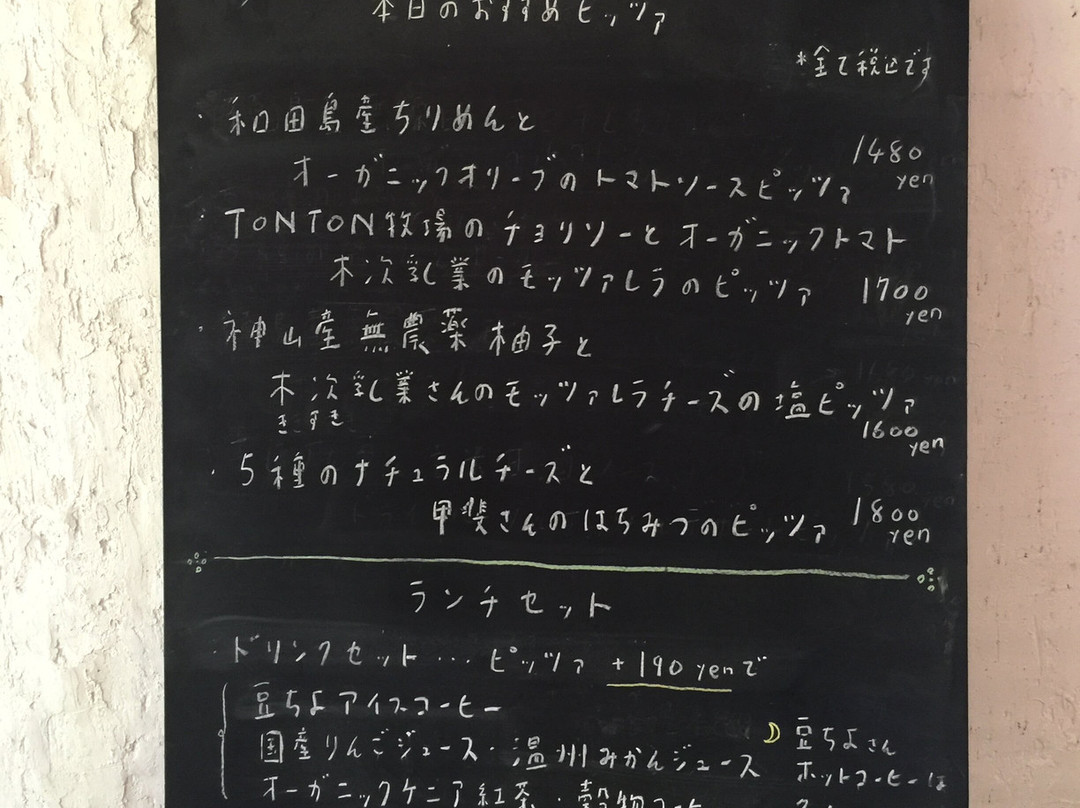 本日のおすすめピッツァ
*全て税込です
・和田島産ちりめんと
オーガニックオリーブのトマトソースピッツァ 1480 yen
・TONTON牧場のチョリソーとオーガニックトマト
木次乳業のモッツァレラのピッツァ 1700 yen
・神山産無農薬柚子と
木次乳業さんのモッツァレラチーズの塩ピッツァ
きすき
1600 yen
・5種のナチュラルチーズと
甲斐さんのはちみつのピッツァ 1800 yen
ランチセット
・ドリンクセット…ピッツァ +190 yenで
豆ちよアイスコーヒー
国産りんごジュース・温州みかんジュース
オーガニックケニア紅茶・穀物コーヒー
豆ちよさん
ホットコーヒーは